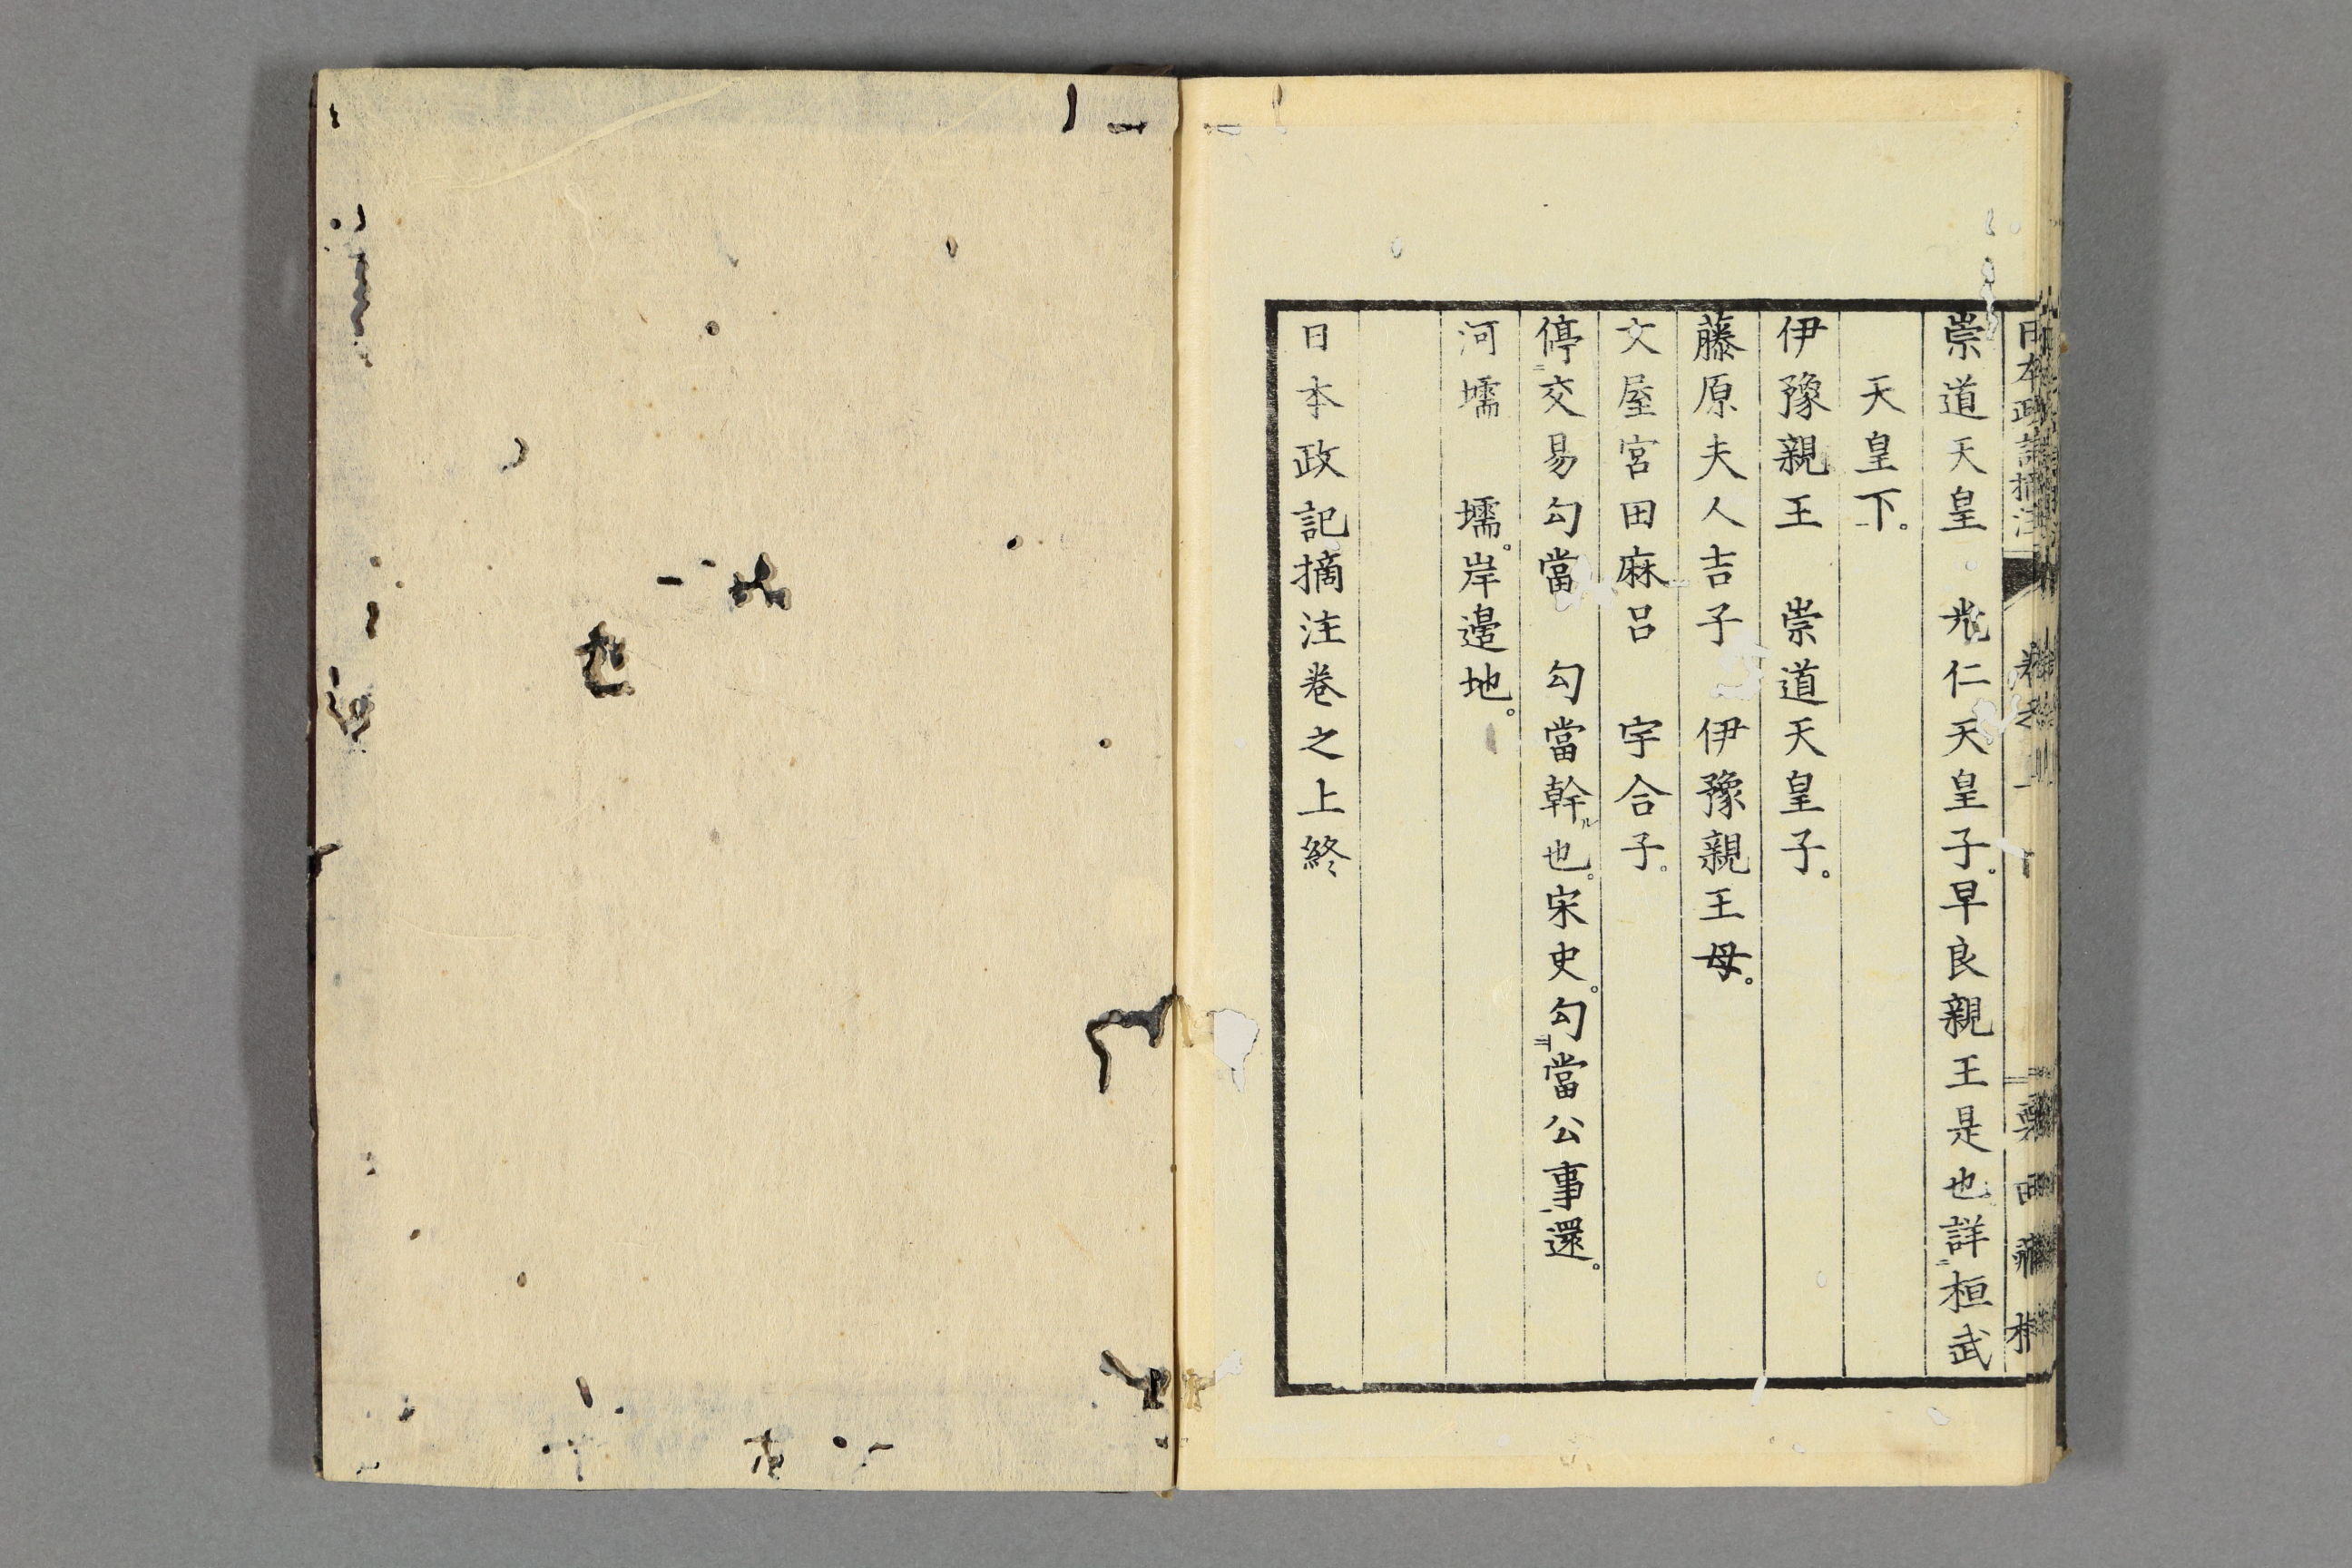 日本政記摘注 卷之上
崇道天皇 光仁天皇子。早良親王是也詳二桓武
天皇下一。
伊豫親王 崇道天皇子。
藤原夫人吉子 伊豫親王母。
文屋宮田麻呂 宇合子。
停二交易勾當一 勾當幹ル也。宋史。勾二當公事一還。
河壖 壖。岸邉地。
日本政記摘注卷之上終